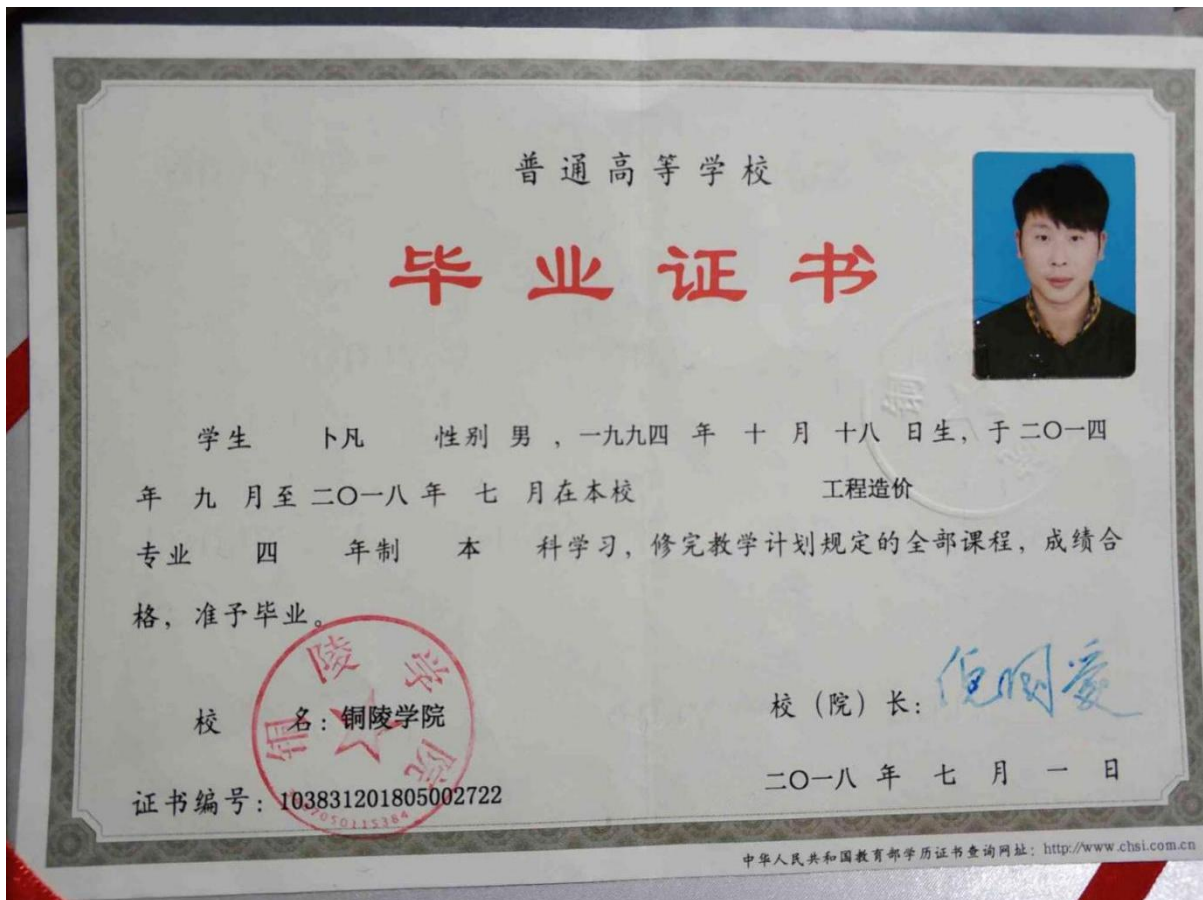 普通高等学校
毕业证书
学生 卜凡 性别 男 ，一九九四 年 十 月 十八 日生，于二〇一四
年 九 月至 二〇一八 年 七 月在本校 工程造价
专业 四 年制 本 科学习，修完教学计划规定的全部课程，成绩合
格，准予毕业。
铜陵学院
校 名：铜陵学院
校（院）长：
证书编号：103831201805002722
二〇一八 年 七 月 一 日
中华人民共和国教育部学历证书查询网址：http://www.chsi.com.cn